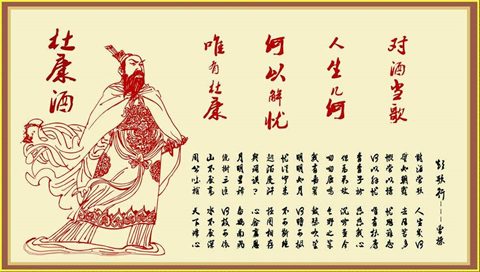 对酒当歌
人生几何
何以解忧
唯有杜康
杜康酒
短歌行——曹操
对酒当歌 人生几何
譬如朝露 去日苦多
慨当以慷 忧思难忘
何以解忧 唯有杜康
青青子衿 悠悠我心
但为君故 沉吟至今
呦呦鹿鸣 食野之苹
我有嘉宾 鼓瑟吹笙
明明如月
忧从中来 不可断绝
越陌度阡 枉用相存
心念旧恩
月明星稀 乌鹊南飞
绕树三匝 何枝可依
山不厌高 水不厌深
周公吐哺 天下归心